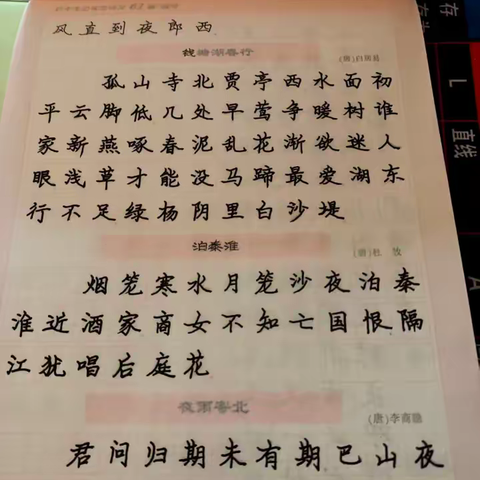 风直到夜郎西
钱塘湖春行
(唐)白居易
孤山寺北贾亭西水面初
平云脚低几处早莺争暖树谁
家新燕啄春泥乱花渐欲迷人
眼浅草才能没马蹄最爱湖东
行不足绿杨阴里白沙堤
泊秦淮
(唐)杜牧
烟笼寒水月笼沙夜泊秦
淮近酒家商女不知亡国恨隔
江犹唱后庭花
夜雨寄北
(唐)李商隐
君问归期未有期巴山夜
存
L
直线
A